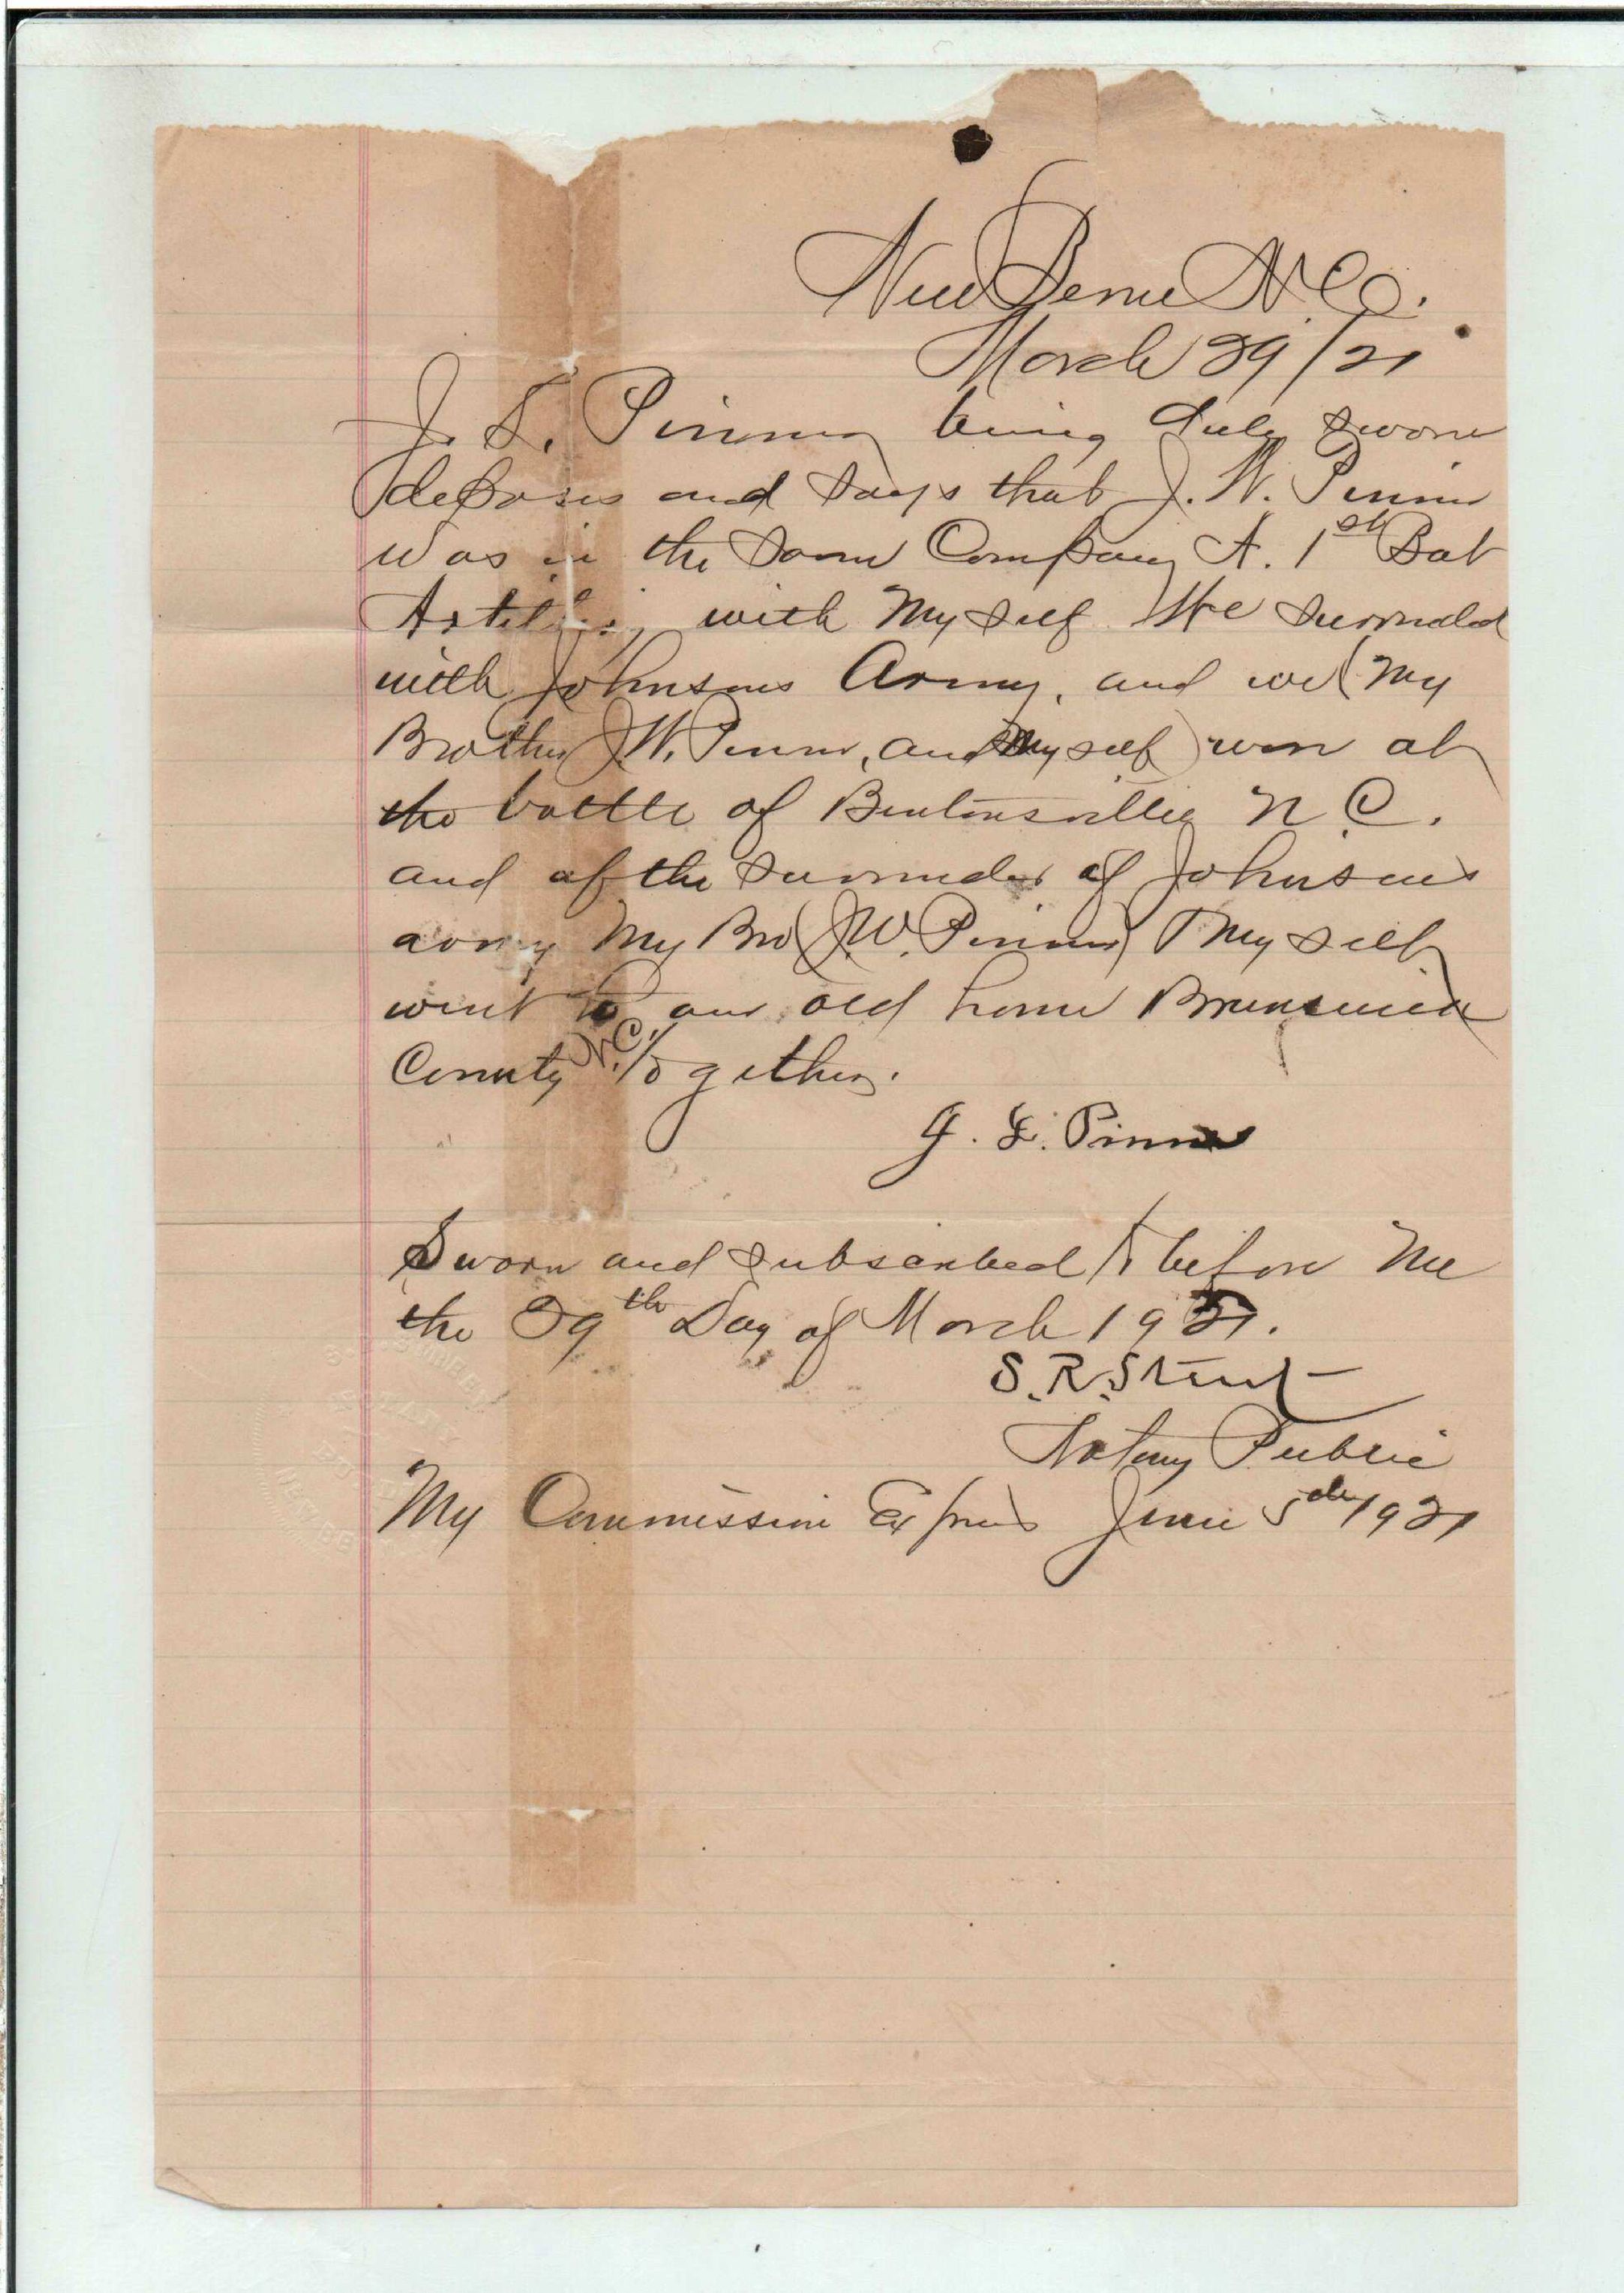 New Berne N.C.
March 29/21
J. L. Pinner being duly sworn
deposes and says that J. W. Pinner
was in the same Company A. 1st Bat
with My self We surrended
with Johnsons Army, and we (My
Brother J.W. Pinner, and My self) were at
the battle of Bentonsville N.C.
and af the surrender of Johnsons
army My Bro (J.W. Pinner) My self
went to our old home Brunswick
County N.C. together.
J. L. Pinner
Sworn and subscribed to before me
the 29th Day of March 1921.
S. R. Street
Notary Public
My Commission Expires June 5 1921